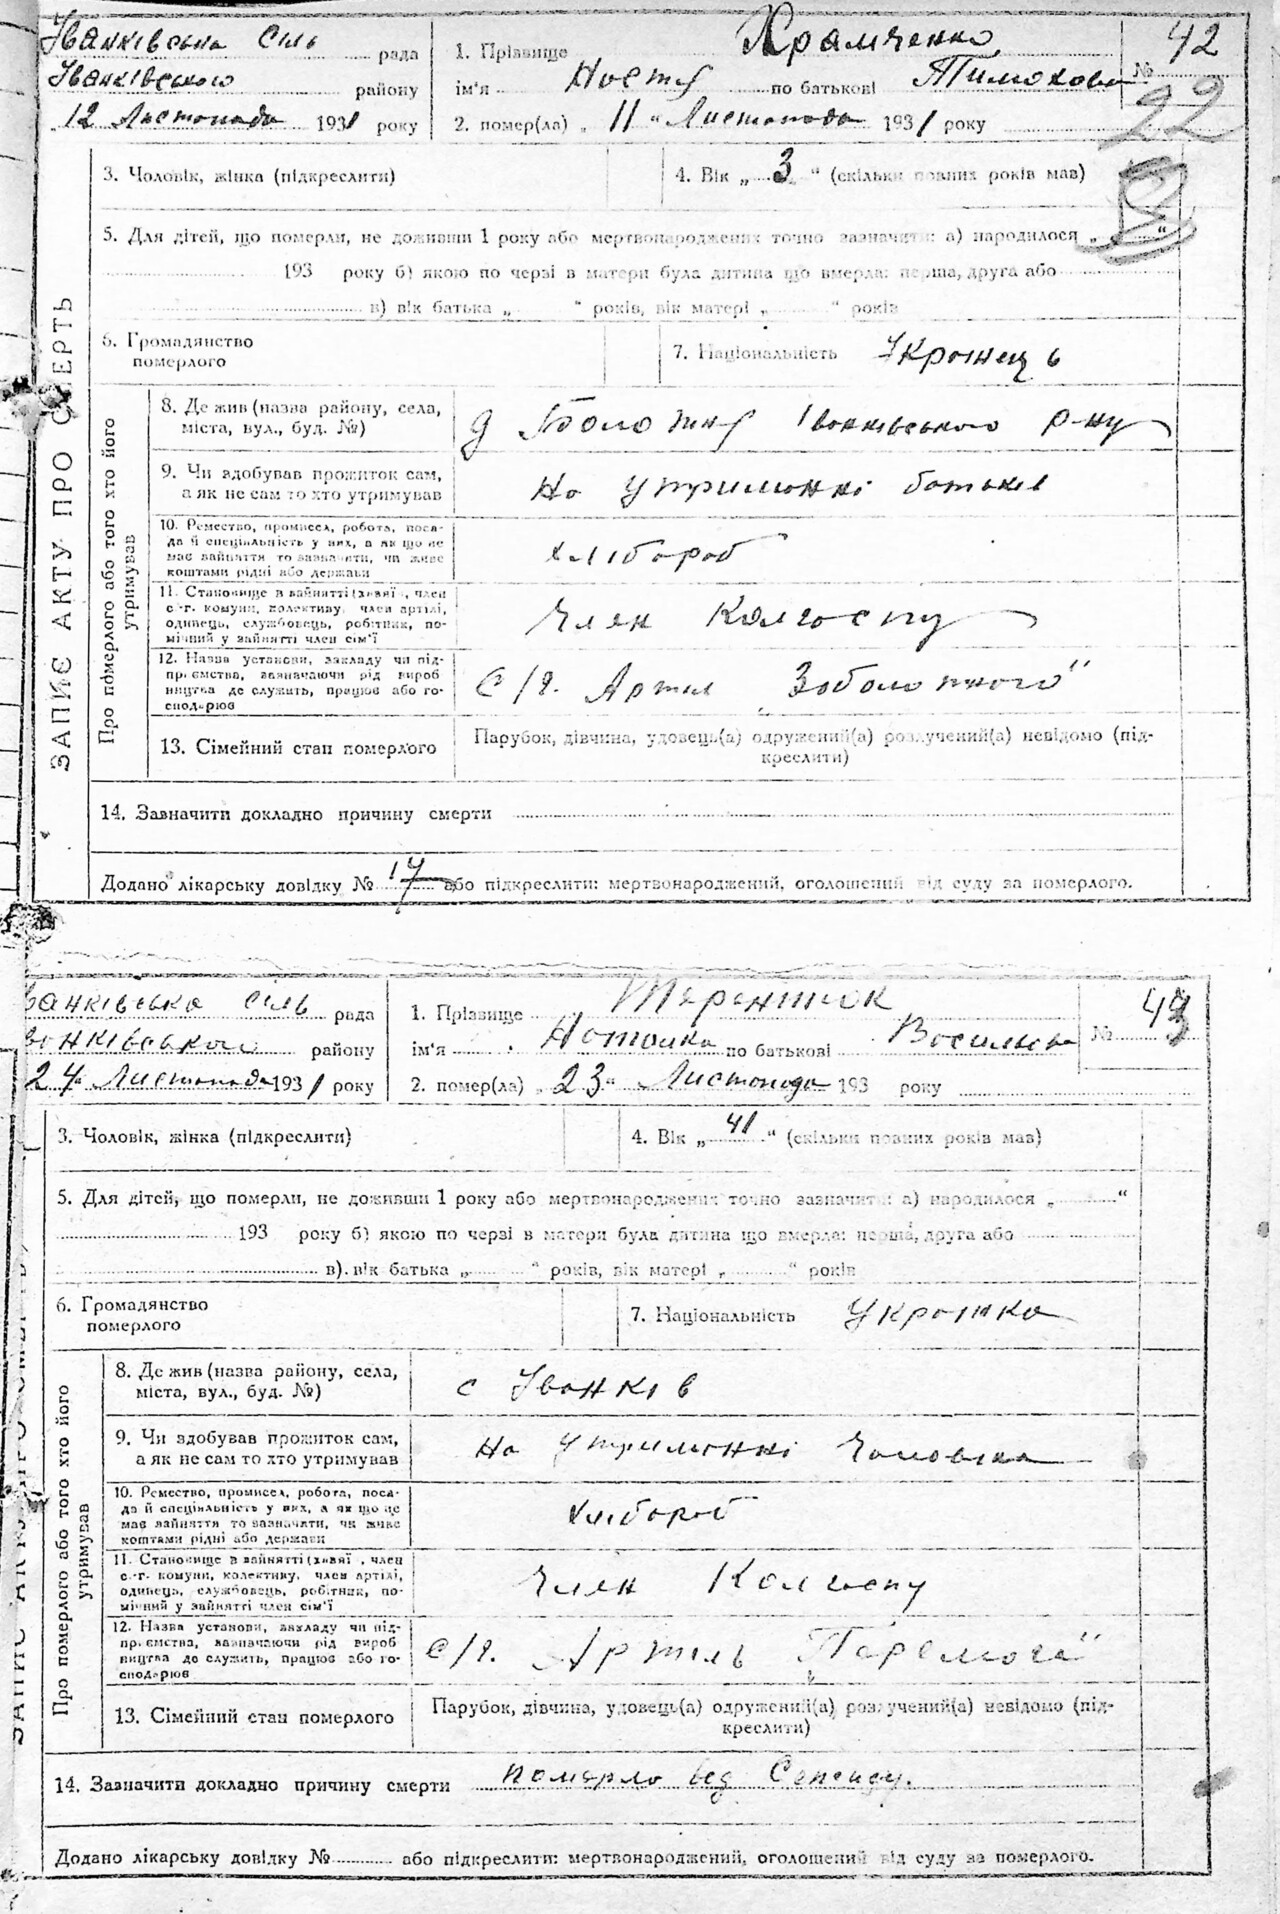 Іванківська сіль рада
Іванківського району
12 Листопада 1931 року
1. Прізвище Храмченко
ім'я Настя по батькові Тимохова
2. помер(ла) „ 11 " Листопада 1931 року
№ 42
22
ЗАПИС АКТУ ПРО СМЕРТЬ
3. Чоловік, жінка (підкреслити)
4. Вік „ 3 " (скільки повних років мав)
5. Для дітей, що померли, не доживши 1 року або мертвонароджених точно зазначити: а) народилося „ "
193 року б) якою по черзі в матери була дитина що вмерла: перша, друга або
в) вік батька „ " років, вік матері „ " років
6. Громадянство
померлого
7. Національність Украінець
Про померлого або того хто його
утримував
8. Де жив (назва району, села,
міста, вул., буд. №)
Іванківського р-ну
9. Чи здобував прожиток сам,
а як не сам то хто утримував
На утриманні батьків
10. Ремество, промисел, робота, поса-
да й спеціяльність у них, а як що не
має зайняття то зазначити, чи живе
коштами рідні або держави
хлібороб
11. Становище в зайнятті (хазяї, член
с.-г. комуни, колективу, член артілі,
одинець, службовець, робітник, по-
мічний у зайнятті член сім'ї
Член Колгоспу
12. Назва установи, закладу чи під-
приємства, зазначаючи рід вироб
ництва де служить, працює або го-
сподарює
С/г. Артіл „
13. Сімейний стан померлого
Парубок, дівчина, удовець(а) одружений(а) розлучений(а) невідомо (під-
креслити)
14. Зазначити докладно причину смерти
Додано лікарську довідку № 17 або підкреслити: мертвонароджений, оголошений від суду за померлого.
ванківська сіль рада
ванківського району
24 Листопада 1931 року
1. Прізвище Терентюк
ім'я Наталка по батькові Васильова
2. помер(ла) „ 23 " Листопада 193 року
№ 43
3. Чоловік, жінка (підкреслити)
4. Вік „ 41 " (скільки повних років мав)
5. Для дітей, що померли, не доживши 1 року або мертвонароджених точно зазначити: а) народилося „ "
193 року б) якою по черзі в матери була дитина що вмерла: перша, друга або
в) вік батька „ " років, вік матері „ " років
6. Громадянство
померлого
7. Національність Украінка
Про померлого або того хто його
утримував
8. Де жив (назва району, села,
міста, вул., буд. №)
с Іванків
9. Чи здобував прожиток сам,
а як не сам то хто утримував
На утриманні Чоловіка
10. Ремество, промисел, робота, поса-
да й спеціяльність у них, а як що не
має зайняття то зазначити, чи живе
коштами рідні або держави
хлібороб
11. Становище в зайнятті (хазяї, член
с.-г. комуни, колективу, член артілі,
одинець, службовець, робітник, по-
мічний у зайнятті член сім'ї
Член Колгоспу
12. Назва установи, закладу чи під-
приємства, зазначаючи рід вироб
ництва де служить, працює або го-
сподарює
С/г. Артіль „Перемога"
13. Сімейний стан померлого
Парубок, дівчина, удовець(а) одружений(а) розлучений(а) невідомо (під-
креслити)
14. Зазначити докладно причину смерти
Додано лікарську довідку № або підкреслити: мертвонароджений, оголошений від суду за померлого.